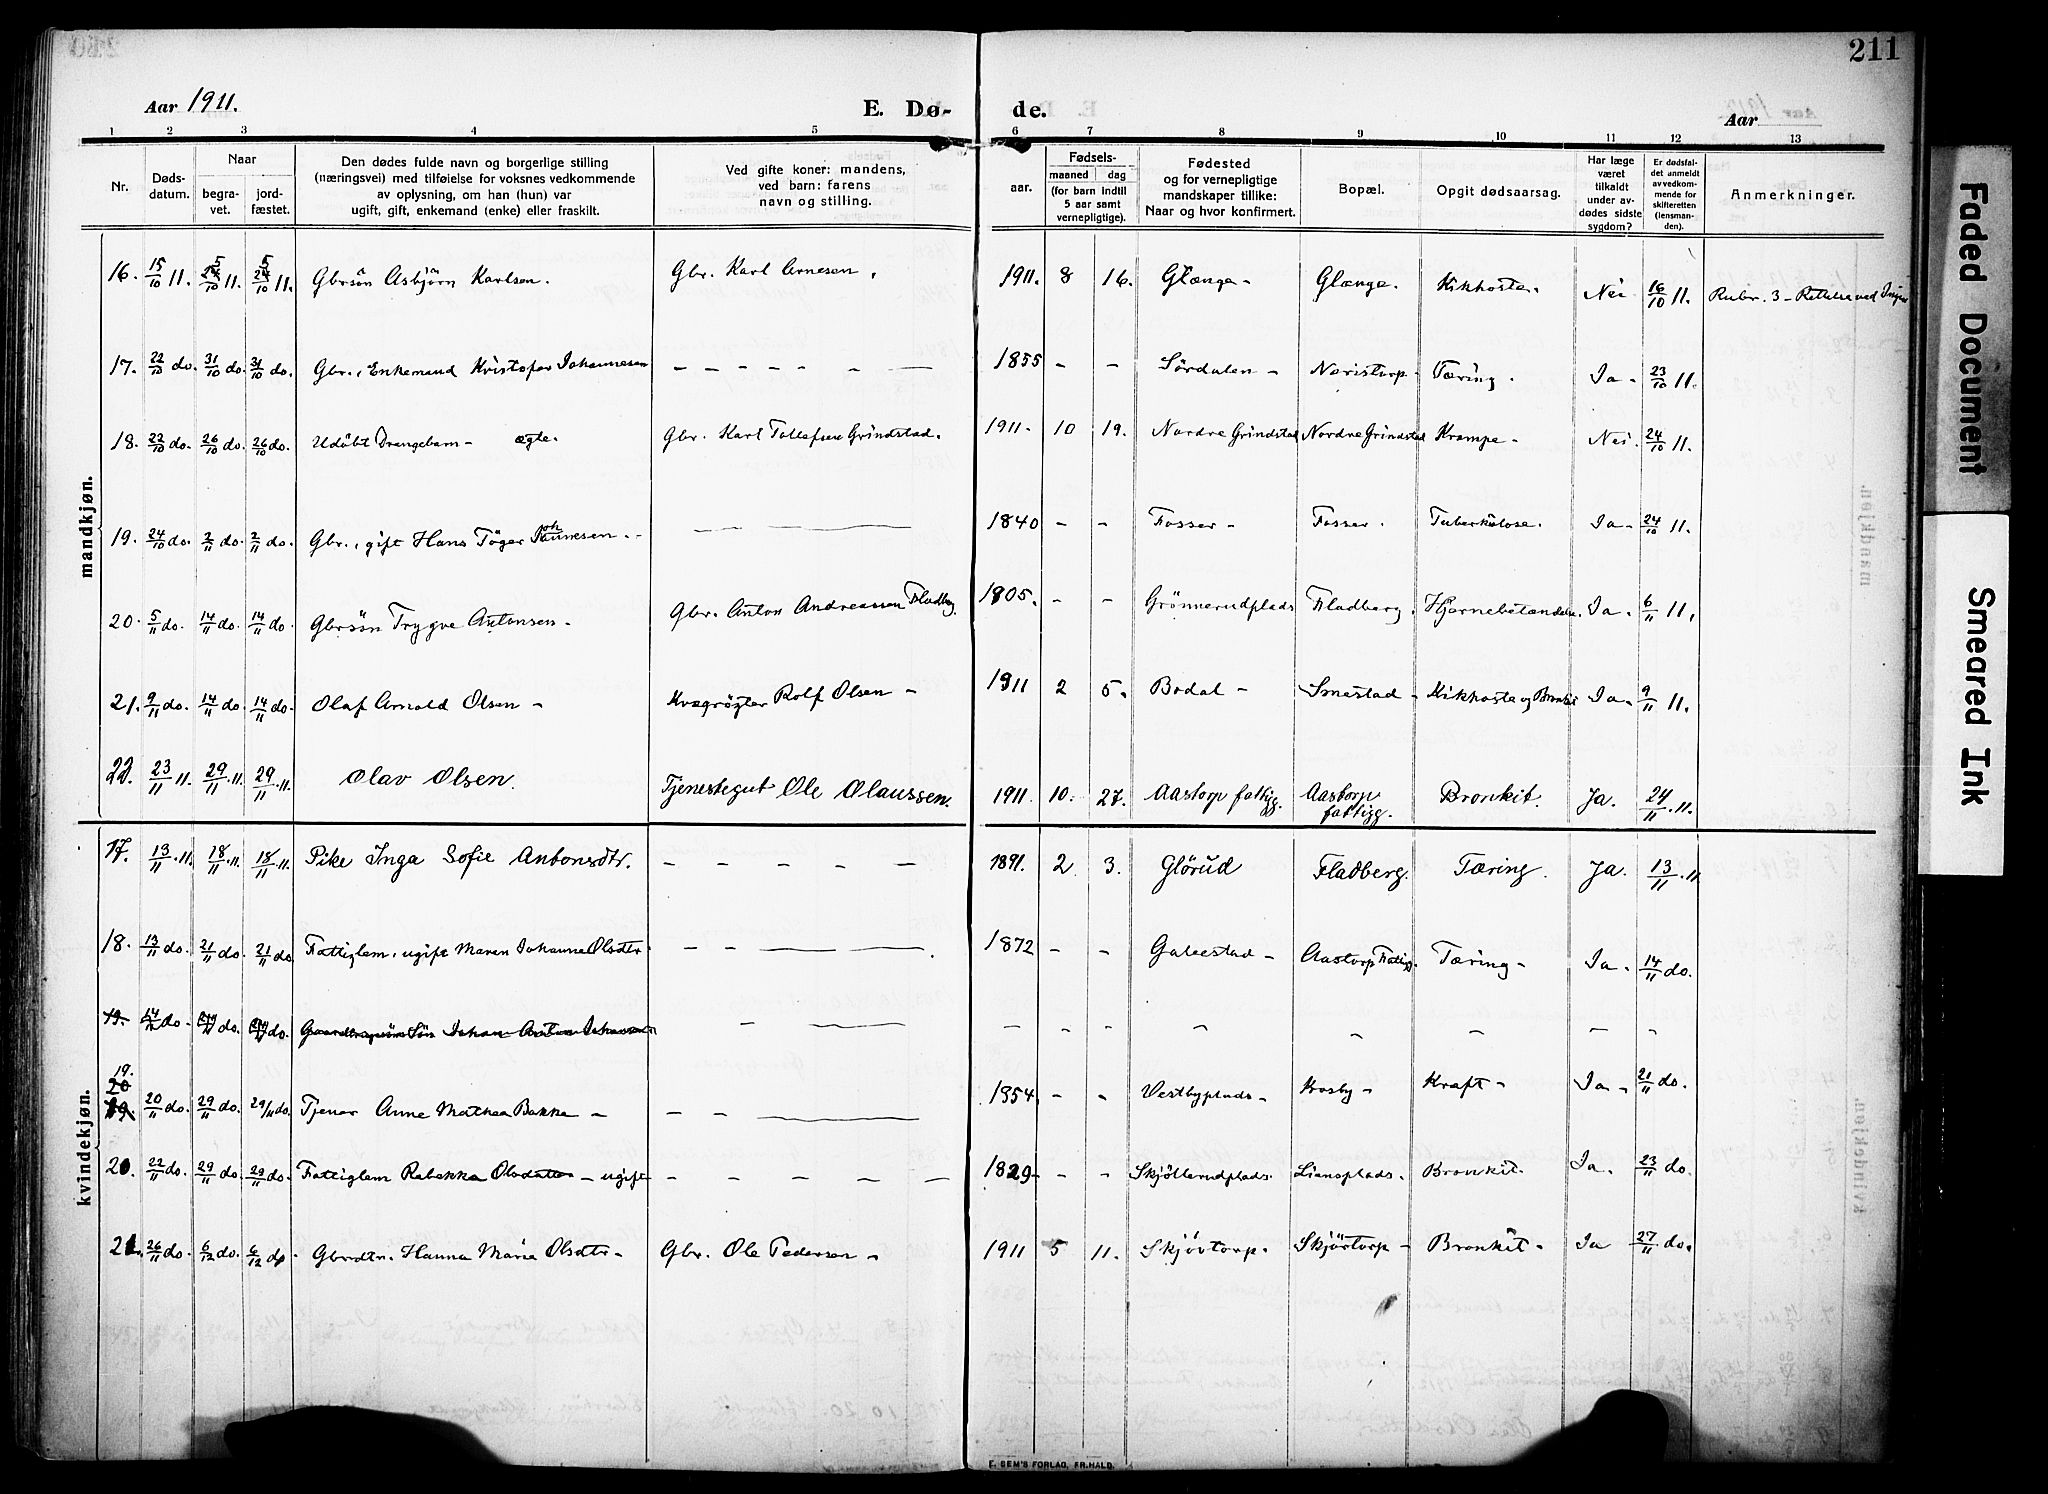 211
Aar 1911.
E. Dø-
de.
Aar
1 2 3 4 5 6 7 8 9 10 11 12 13
Nr.
Døds-
datum.
Naar
begra-
vet.
jord-
fæstet.
Den dødes fulde navn og borgerlige stilling
(næringsvei) med tilføielse for voksnes vedkommende
av oplysning, om han (hun) var
ugift, gift, enkemand (enke) eller fraskilt.
Ved gifte koner: mandens,
ved barn: farens
navn og stilling.
Fødsels-
aar.
maaned dag
(for barn indtil
5 aar samt
vernepligtige).
Fødested
og for vernepligtige
mandskaper tillike:
Naar og hvor konfirmert.
Bopæl.
Opgit dødsaarsag.
Har læge
været
tilkaldt
under av-
dødes sidste
sygdom?
Er dødsfal-
det anmeldt
av vedkom-
mende for
skifteretten
(lensman-
den).
Anmerkninger.
mandkjøn.
16. 15/10 11. 5/10 11. 5/10 11. Gbrsön Asbjörn Karlsen. Gbr. Karl Arnesen. 1911. 8 16. Glænge - Glænge. Kikhoste. Nei 16/10 11. Rubr. 3 - Rettelse ved
17. 22/10 do. 31/10 do. 31/10 do. Gbr., Enkemand Kristofer Johannesen - - - - - - 1855 - - Sørdalen - Næristorp - Tæring. Ja - 23/10 11.
18. 22/10 do. 26/10 do. 26/10 do. Udöbt Drengebarn - ægte. Gbr. Karl Tollefsen Grindstad. 1911 - 10 19. Nordre Grindstad Nordre Grindstad Krampe - Nei. 24/10 11.
19. 24/10 do. 2/11 do. 2/11 do. Gbr., gift Hans Töger Johannesen. - - - - - 1840 - - Fosser - Fosser. Tuberkulose. Ja - 24/10 11.
20. 5/11 do. 14/11 do. 14/11 do. Gbrsön Trygve Antonsen - Gbr. Anton Andreassen Fladberg. 1905. - - Grönnerudplads Fladberg. Hjernebetændelse. Ja - 6/11 11.
21. 9/11 do. 14/11 do. 14/11 do. Olaf Arnold Olsen - Kvægrögter Rolf Olsen - 1911 2 5. Bodal - Smestad - Kikhoste og Bronkit Ja - 9/11 11.
22. 23/11 11. 29/11 11. 29/11 11. Olav Olsen. Tjenestegut Ole Olaussen. 1911. 10. 27. Aastorp fattigg. Aastorp fattigg. Bronkit. Ja. 24/11 11.
kvindekjøn.
17. 13/11 11. 18/11 11. 18/11 11. Pike Inga Sofie Antonsdtr. - - - - 1891. 2. 3. Glörud Fladberg. Tæring. Ja. 13/11 11
18. 13/11 do. 21/11 do. 21/11 do Fattiglem, ugift Maren Johanne Olsdtr. - - - - 1872 - - Aastorp Fattigg. Tæring - Ja - 14/11 do.
19. 14/11 do - do. do. Johan Anton - - - - - - - - - -
19. 20/11 do. 29/11 do. 29/11 do. Tjener Anne Mathea Bakke - - - - 1854. - - Vestbyplads - Krosby - Kræft - Ja - 21/11 do.
20. 22/11 do. 29/11 do. 29/11 do. Fattiglem Rebekka Olsdatter - ugift - - - - - 1829 - - - Skjöllerudplads. Lianeplads. Bronkit. Ja. 23/11 do.
21. 26/11 do. 6/12 do. 6/12 do - Gbrdtr. Hanna Marie Olsdtr - Gbr. Ole Pedersen - 1911 5 11. Skjövtorp. Skjövtorp - Bronkit - Ja 27/11 do.
E. SEM'S FORLAG, FR.HALD.
Faded Document
Smeared Ink